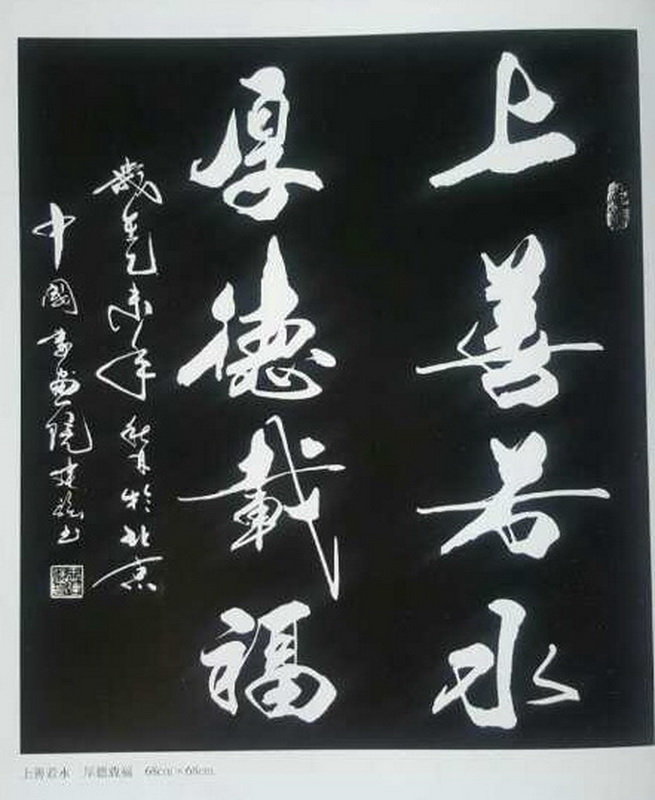 上善若水
厚德載福
歲在乙未年秋月於北京
中國書畫院建书
上善若水 厚德载福 68cm×68cm